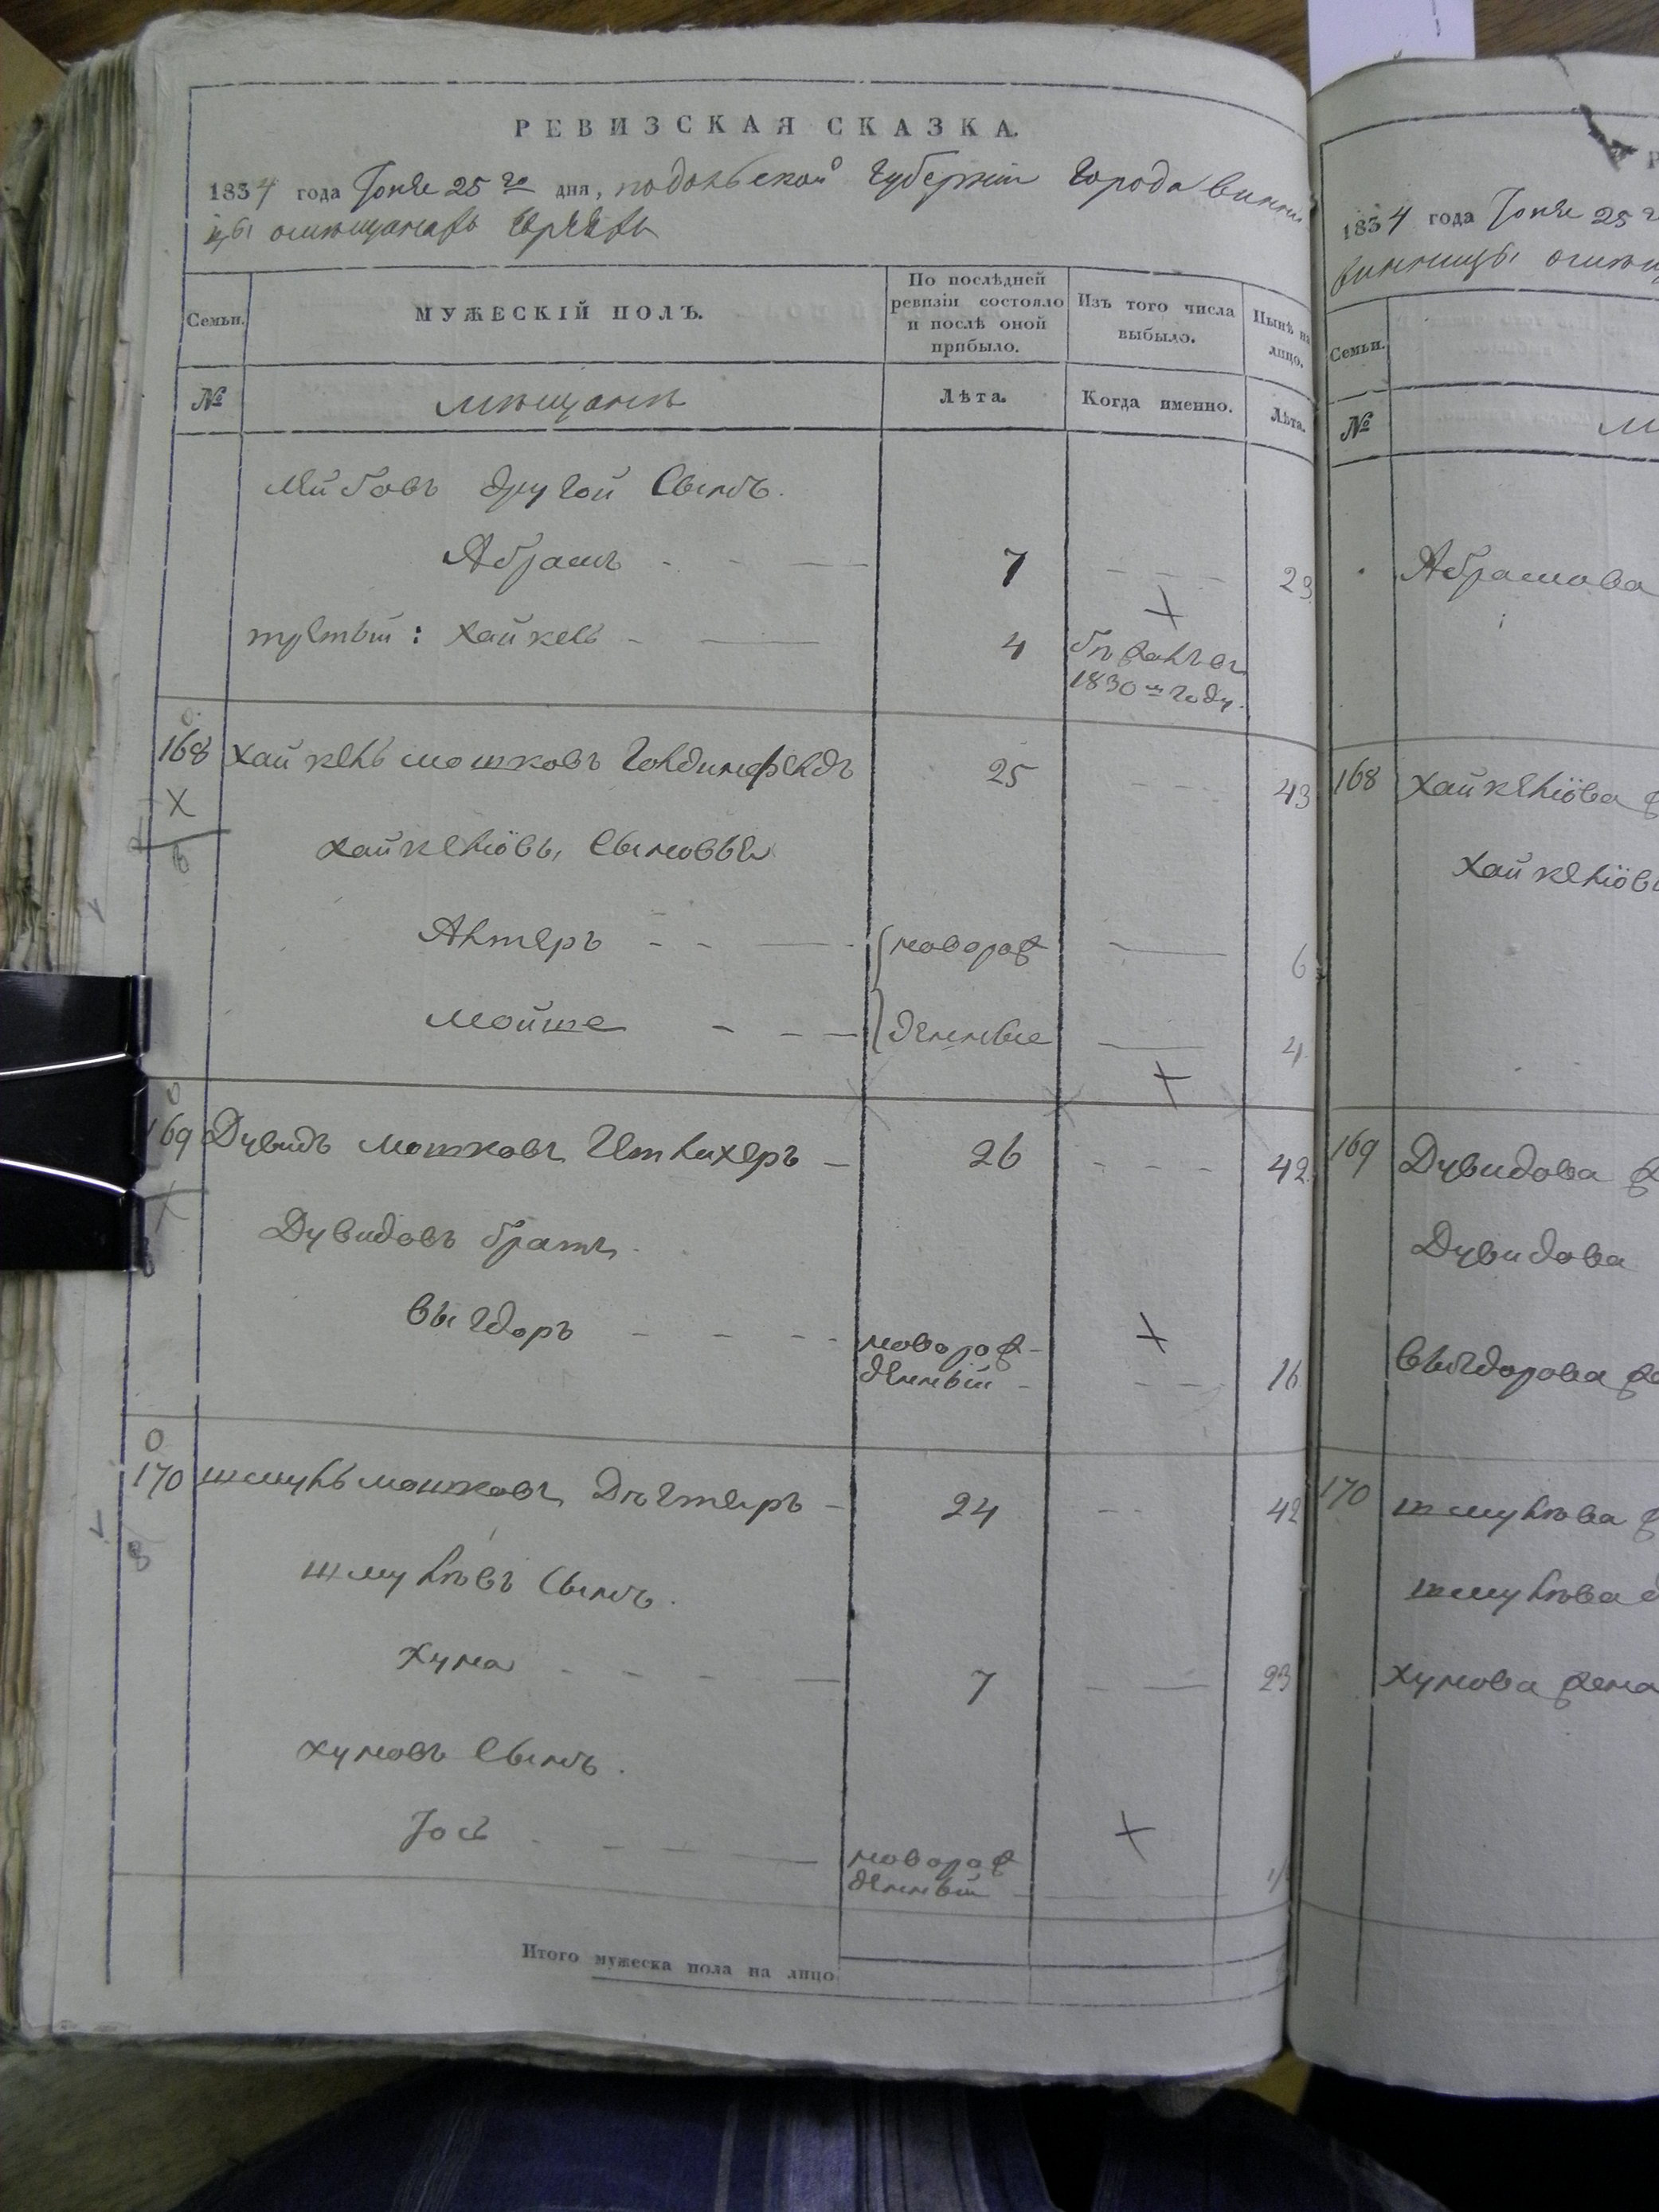 РЕВИЗСКАЯ СКАЗКА.
1834 года Іюня 25го дня, подольской Губерніи Города Винни
цы о мѣщанахъ Евреяхъ
Семьи.
МУЖЕСКІЙ ПОЛЪ.
По послѣдней ревизіи состояло и послѣ оной прибыло.
Изъ того числа выбыло.
Нынѣ на лицо.
№
мѣщане
Лѣта.
Когда именно.
Лѣта.
Лейбовъ другой Сынъ.
Абрамъ 7 23
третьій: Хайкель 4 бѣжалъ въ
1830м году.
168 Хайкель мошковъ Голдинфелдъ 25 43
Хайкеліовы Сыновья
Алтеръ новорож 6
Мойше денные 4
169 Дувидъ мошковъ 26 42
Дувидовъ братъ
Выгдоръ новорож-
денный 16
170 шмуль мошковъ 24 42
шмулѣвъ Сынъ.
Хуна 7 23
хуновъ Сынъ.
Іось новорож
денный
Итого мужеска пола на лицо
1834 года Іюня 25
Винницы о мѣщ
Семьи.
№
Абрамова
168 Хайкеліова
Хайкеліовы
169 Дувидова
Дувидова
Выгдорова
170 шмулѣва
шмулѣва
Хунова жена